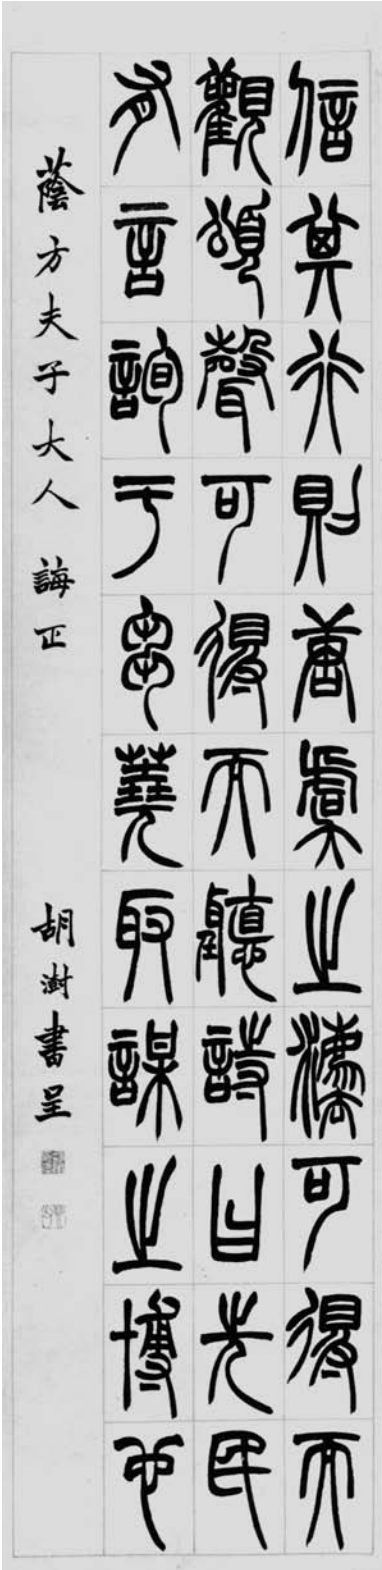 信其行則唐虞之灋可得而
觀頌聲可得而聽詩曰先民
有言詢于芻蕘取謀之博也
蔭方夫子大人 誨正
胡澍書呈